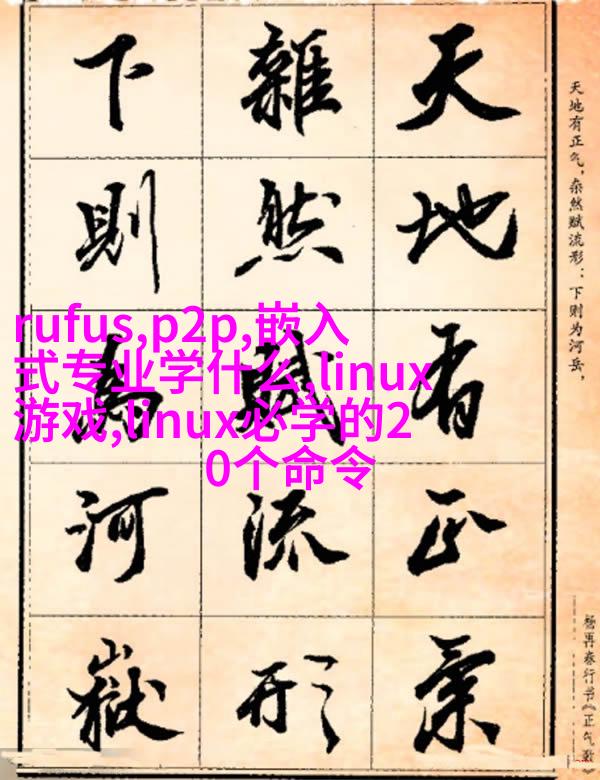 天地有正气，杂然赋流形：下则为河岳，
天地有正氣
雜然賦流形
下則為河嶽
杨再春行书《正气歌》
rufus,p2p,嵌入
式专业学什么,linux
游戏,linux必学的2
0个命令